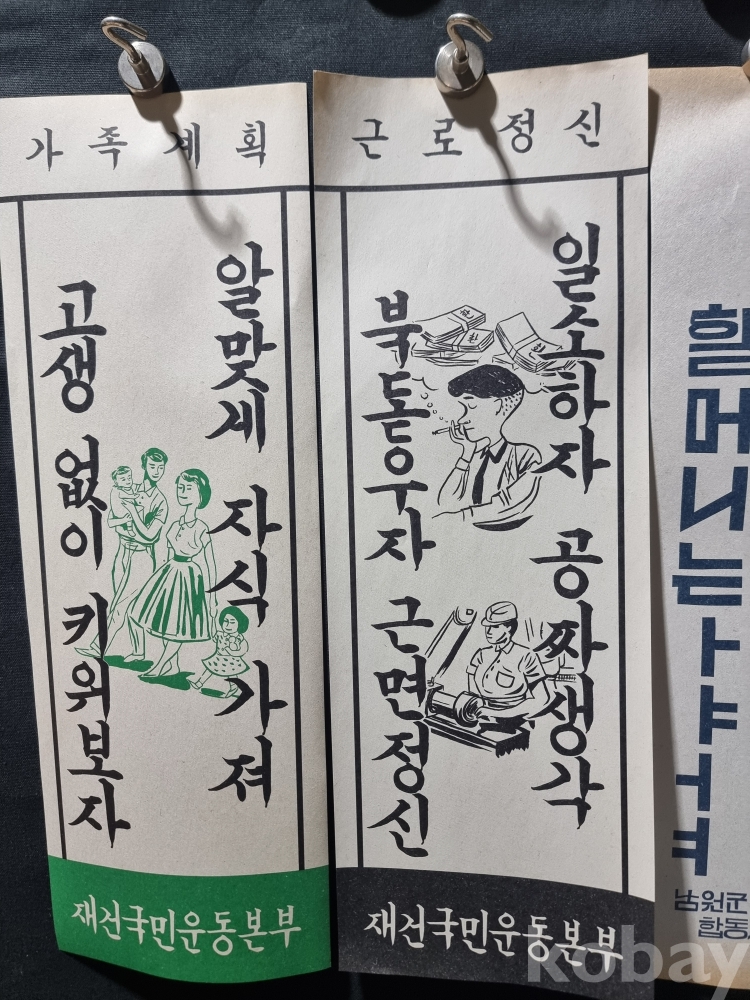 가족계획
알맞게 자식 가져
고생 없이 키워보자
재건국민운동본부
근로정신
일소하자 공짜생각
북돋우자 근면정신
재건국민운동본부
원
원
남원군
합동
kobay